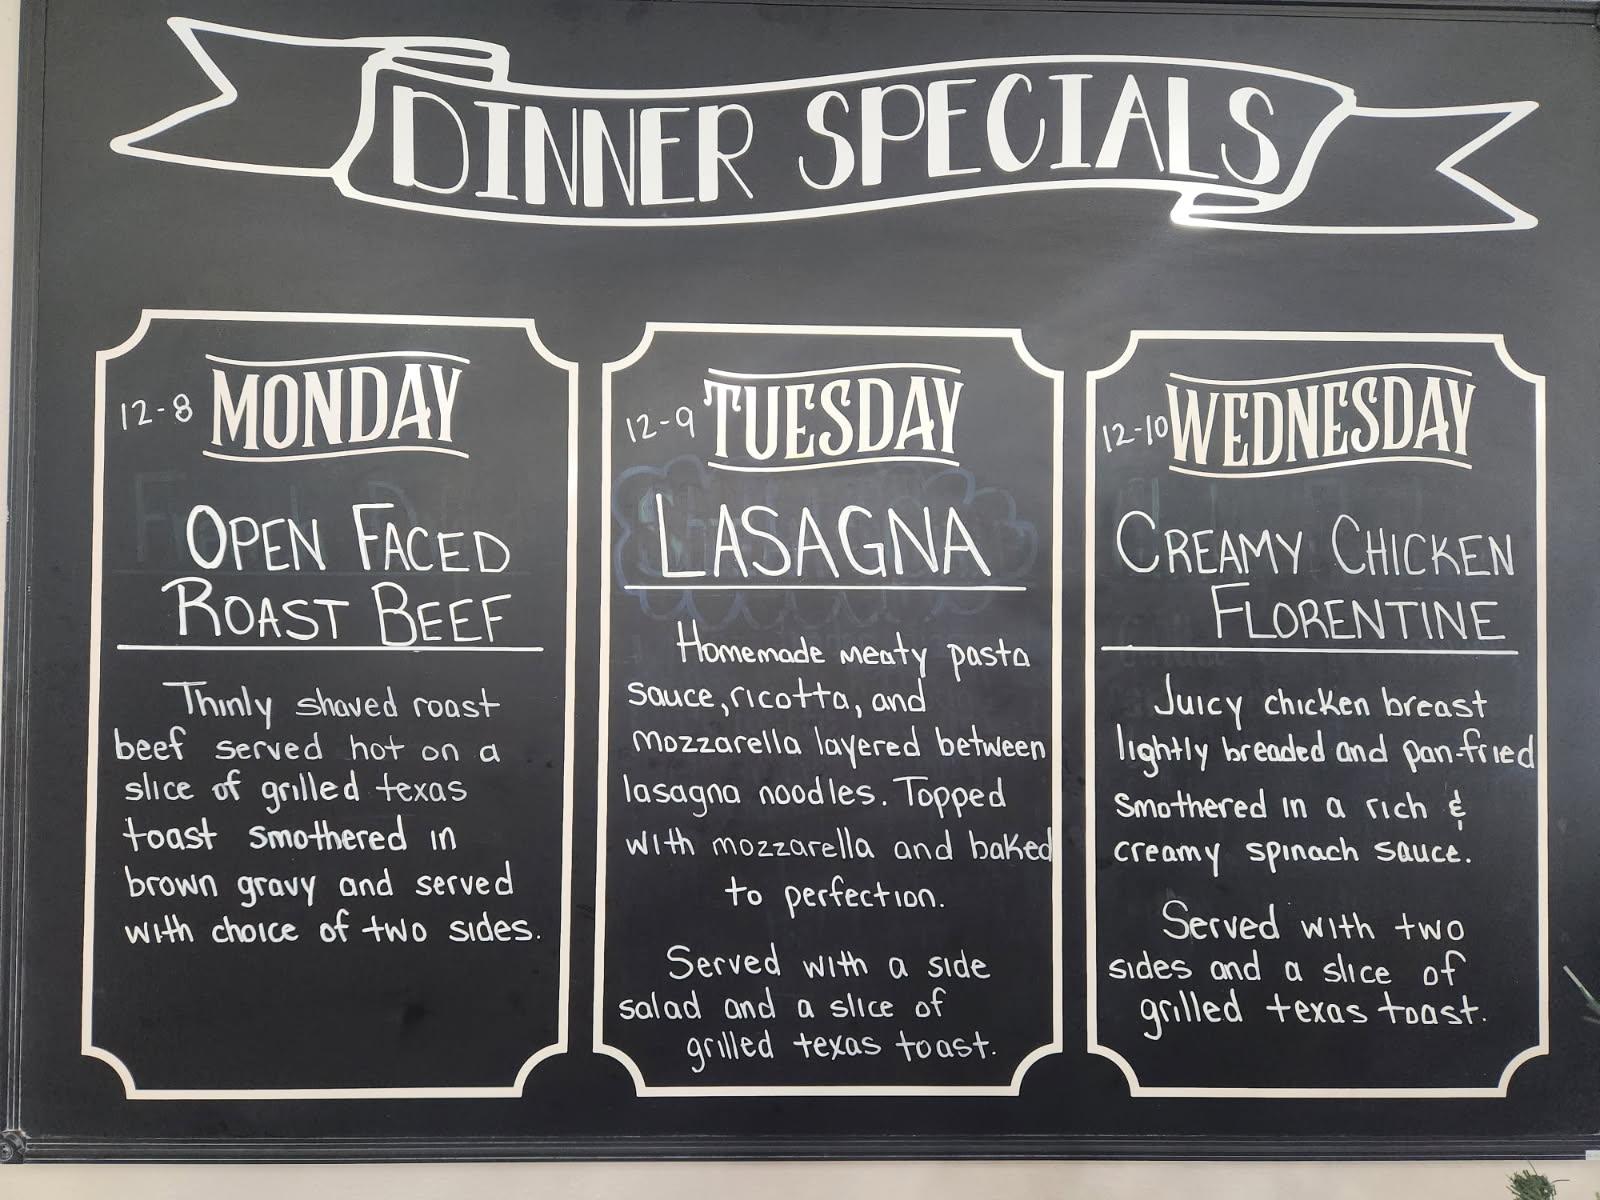 DINNER SPECIALS
12-8 MONDAY
OPEN FACED
ROAST BEEF
Thinly shaved roast
beef served hot on a
slice of grilled texas
toast smothered in
brown gravy and served
with choice of two sides.
12-9 TUESDAY
LASAGNA
Homemade meaty pasta
sauce, ricotta, and
mozzarella layered between
lasagna noodles. Topped
with mozzarella and baked
to perfection.
Served with a side
salad and a slice of
grilled texas toast.
12-10 WEDNESDAY
CREAMY CHICKEN
FLORENTINE
Juicy chicken breast
lightly breaded and pan-fried
smothered in a rich &
creamy spinach sauce.
Served with two
sides and a slice of
grilled texas toast.